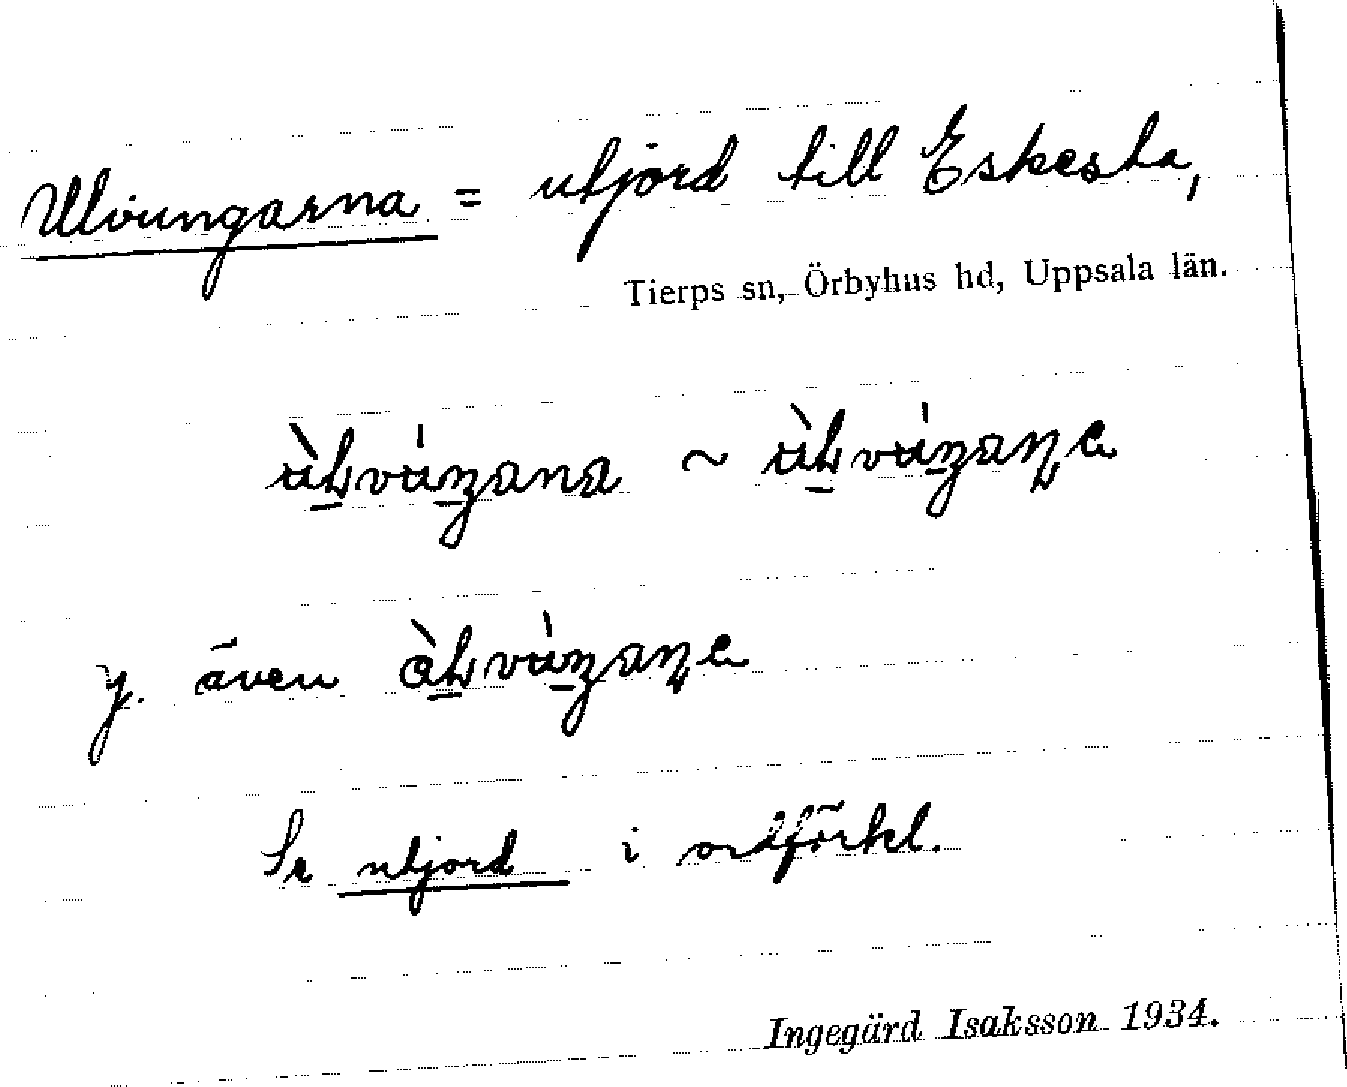 Ulvungarna = utjord till Eskesta,
Tierps sn, Örbyhus hd, Uppsala län.
~
y. även
Se utjord i ordförkl.
Ingegärd Isaksson 1934.